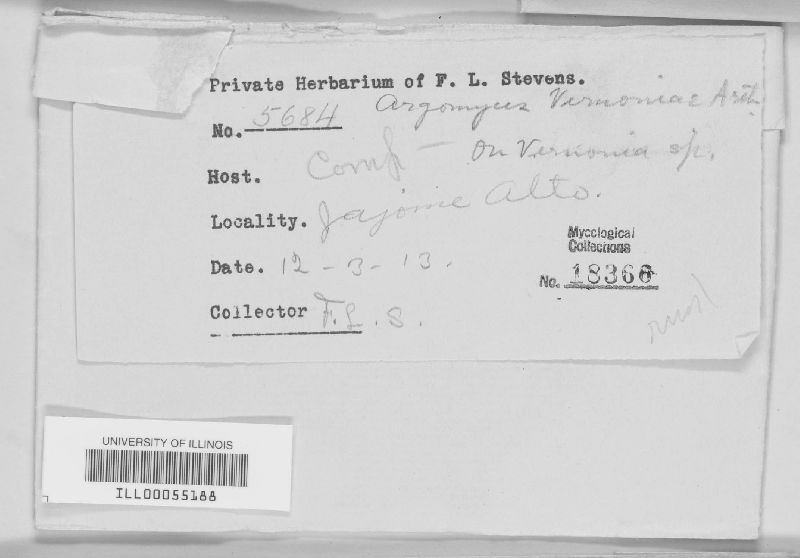 Private Herbarium of F. L. Stevens.
Argomyces Vernoniae Arth.
No. 5684
On Vernonia sp.
Host. Comp -
Locality. Jajome Alto.
Mycological
Collections
Date. 12 - 3 - 13.
No. 18366
Collector F. L. S.
rust
UNIVERSITY OF ILLINOIS
ILL00055188